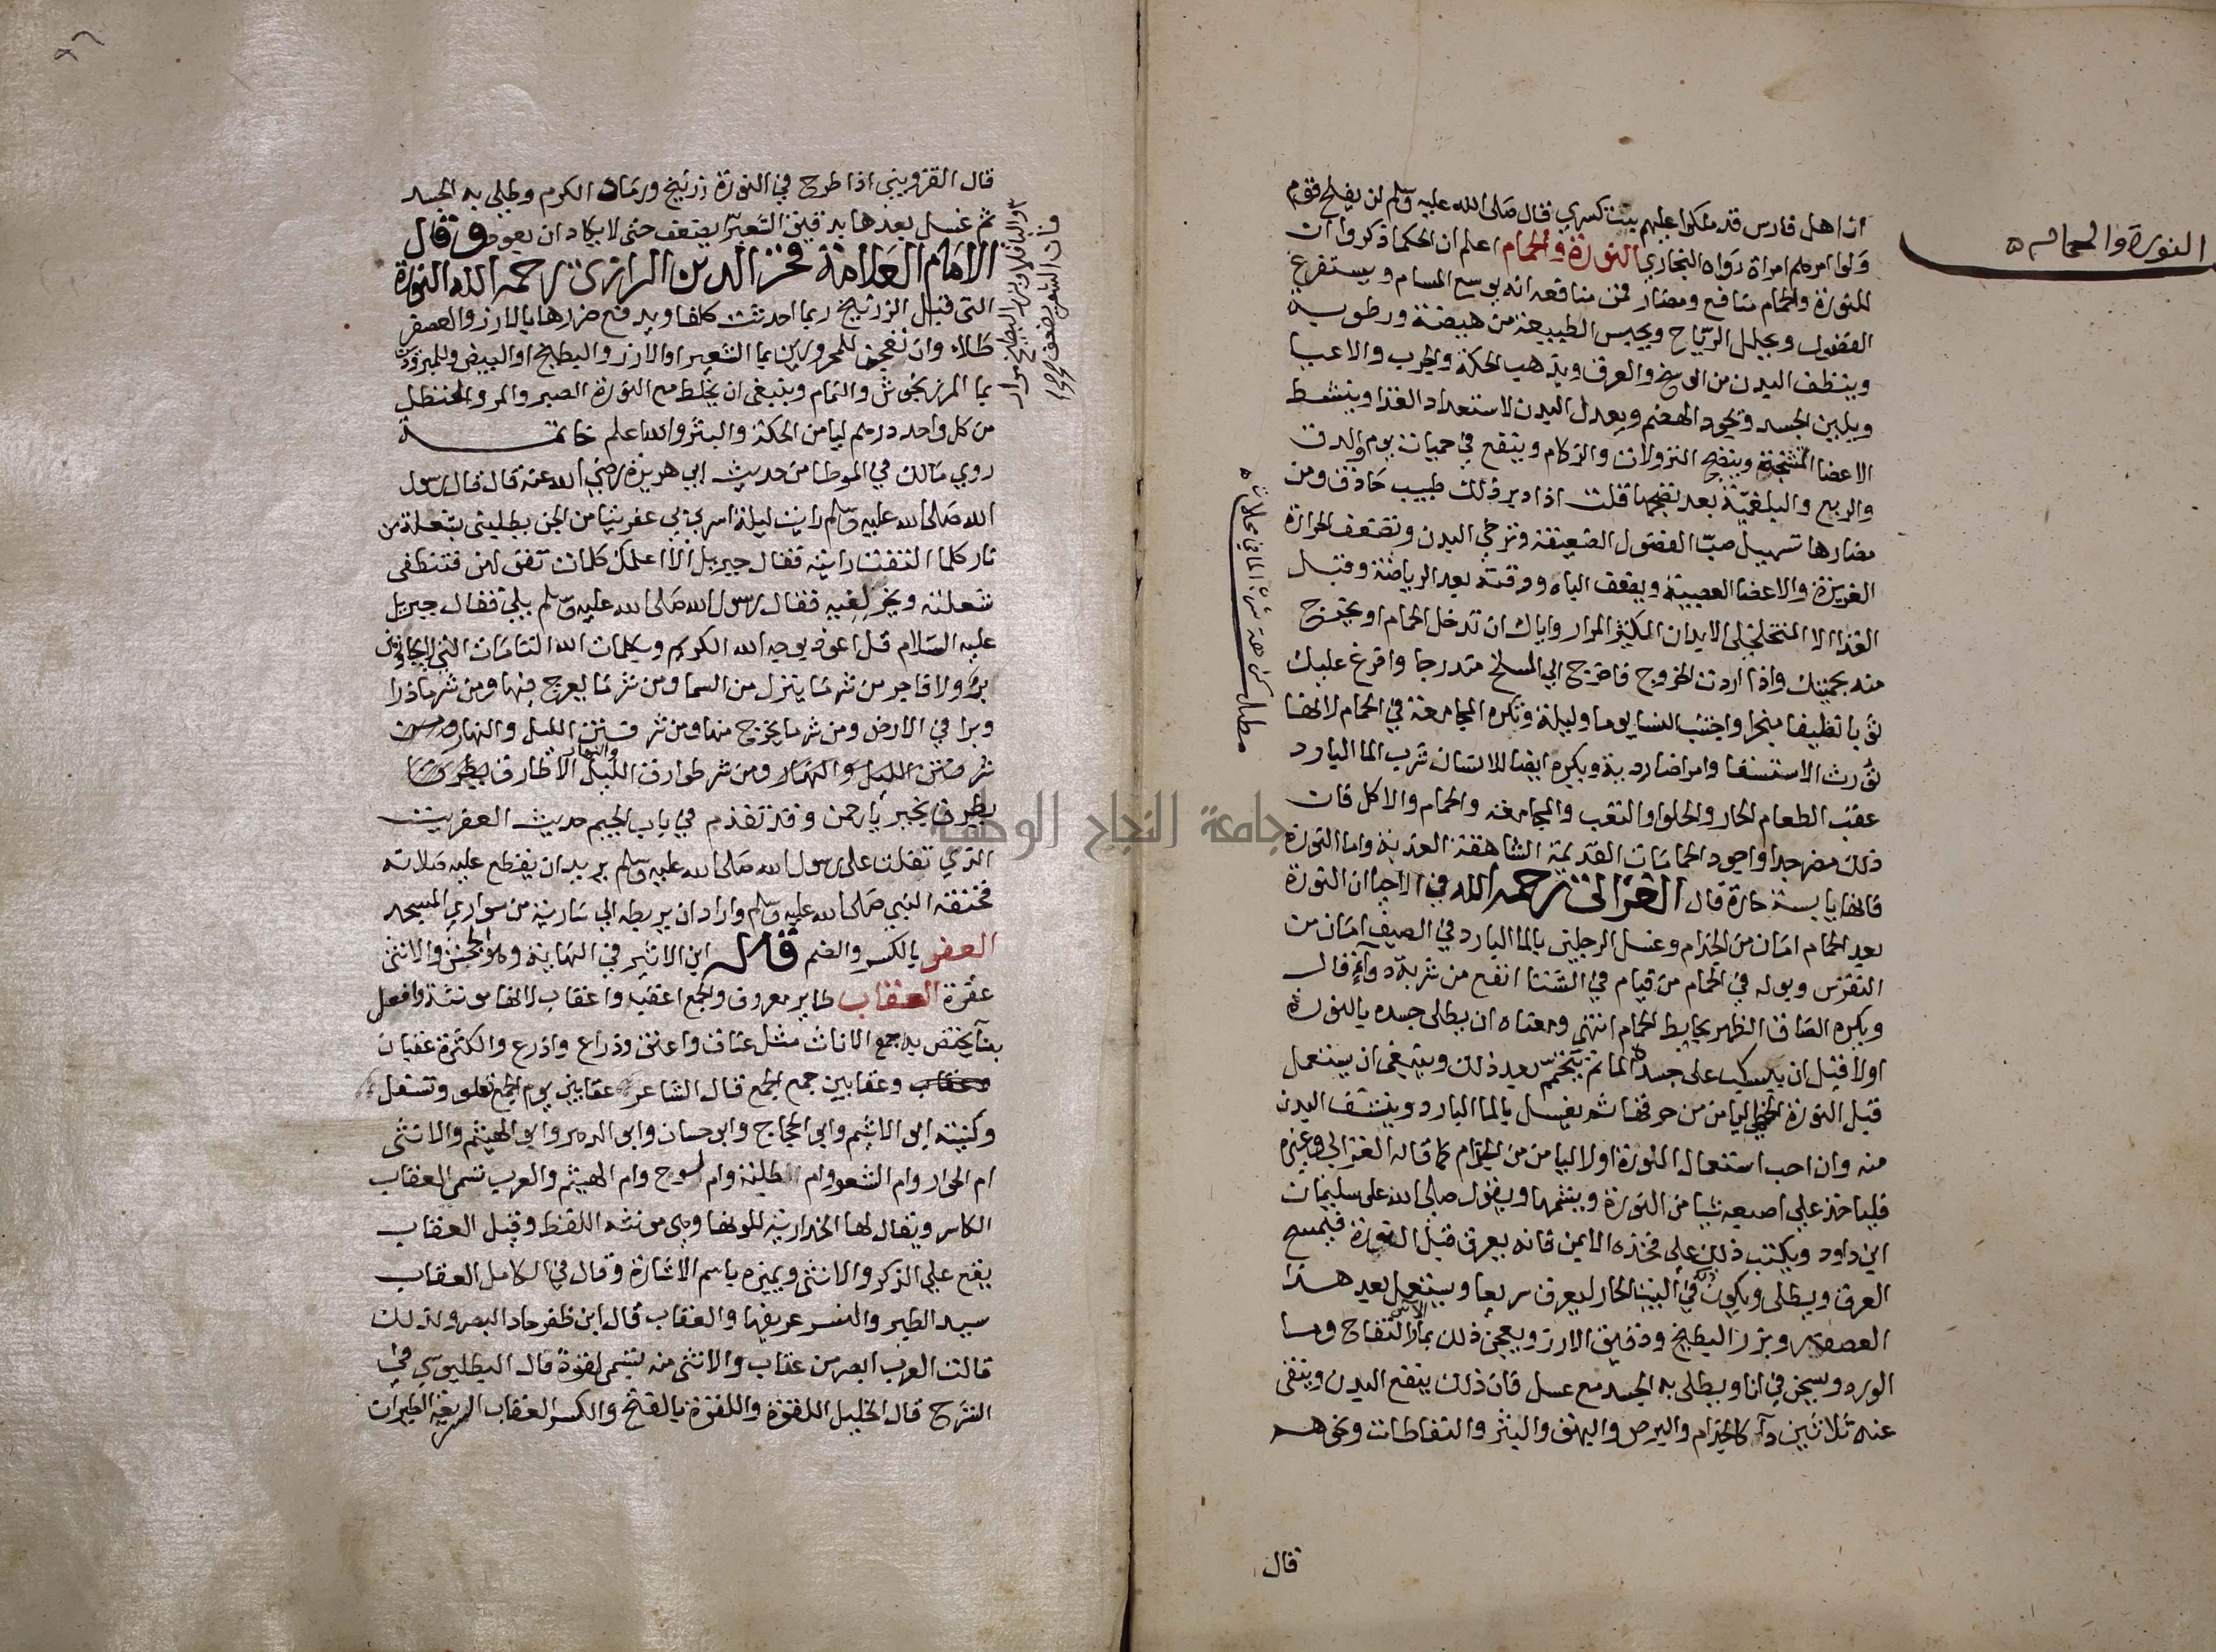 النورة والحمام
ان اهل فارس قد ملكوا عليهم بنت كسري قال صلى الله عليه وسلم لن يفلح قوم
ولوا امرهم امراة رواه البخاري النورة والحمام اعلم ان الحكما ذكروا ان
للنورة والحمام منافع ومضار فمن منافعه انه يوسع المسام ويستفرغ
الفضول ويحلل الرياح ويحبس الطبيعة من هيضة ورطوبة
وينظف البدن من الوسخ والعرق ويذهب الحكة والجرب والاعيا
ويلين الجسد ويجود الهضم ويعدل البدن لاستعداد الغذا وينشط
الاعضا المتشنجة وينضج النزولات والزكام وينفع في حميات يوم والدق
والربع والبلغمية بعد نضجها قلت اذا دبر ذلك طبيب حاذق ومن
مضارها تسهيل صب الفضول الضعيفة وترخي البدن وتضعف الحرارة
الغريزة والاعضا العصبية ويضعف الباه ووقته بعد الرياضة وقبل
الغذا الا المنحلي الابدان المكثير المرار واياك ان تدخل الحمام او تخرج
منه بحميتك واذا اردت الخروج فاخرج الي المسلخ متدرجا وافرغ عليك
ثوبا نظيفا مبخرا واجتنب النسا يوما وليلة وتكره المجامعة في الحمام لانها
تورث الاستسقا وامراضا ردية ويكره ايضا للانسان شرب الما البارد
عقب الطعام الحار والحلوا والتعب والمجامعة والحمام والاكل فان
ذلك مضر جدا واجود الحمامات القديمة الشاهقة العذبة واما النورة
فانها يابسة حارة قال الغزالي رحمه الله في الاحيا ان النورة
بعد الحمام امان من الجذام وغسل الرجلين بالما البارد في الصيف امان من
النقرس وبوله في الحمام من قيام في الشتا انفع من شربة دوآء قال
ويكره الصاق الظهر بحايط الحمام انتهي ومعناه ان يطلى جسده بالنورة
اولا قبل ان يسكب على جسده الما ثم يتحمم بعد ذلك وينبغي ان يستعمل
قبل النورة الخطمي ليامن من حرقها ثم يغسل بالما البارد وينشف البدن
منه وان احب استعمال النورة اولا ليامن من الجذام كما قاله الغزالي وغيره
فلياخذ على اصبعه شيا من النورة ويشمها ويقول صلى الله على سليمان
ابن داود ويكتب ذلك على فخذه الايمن فانه يعرق قبل النورة فيمسح
العرق ويطلى ويكون ذلك في البيت الحار ليعرق سريعا ويستعمل بعد هذا
العصفر وبزر البطيخ ودقيق الارز ويعجن ذلك بماء الاس والتفاح وما
الورد ويسخن في انا ويطلى به الجسد مع عسل فان ذلك ينفع البدن وينقي
عنه ثلاثين دآ كالجذام والبرص والبهق والبثر والنفاطات ونحوها
مطلب كراهة شرب الما في محلات
قال
قال القزويني اذا طرح في النورة زرنيخ ورماد الكرم وطلي به الجسد
ثم غسل بعدها بدقيق الشعير
والباقلا وبزر البطيخ مرار
فان الشعر يضعف
يضعف حتى لا يكاد ان يعود وقال
الامام العلامة فخر الدين الرازي رحمه الله النورة
التي قبل الزرنيخ ربما احدثت كلفا ويدفع ضررها بالارز والعصفر
طلاء وان تعجن للمحرورين بما الشعير او الارز والبطيخ او البيض وللمبرودين
بما المرزنجوش والنمام وينبغي ان يخلط مع النورة الصبر والمر والحنظل
من كل واحد درهم ليامن الحكة والبثر والله اعلم خاتمة
روي مالك في الموطا من حديث ابي هريرة رضي الله عنه قال قال رسول
الله صلى الله عليه وسلم رايت ليلة اسري بي عفريتا من الجن يطلبني بشعلة من
نار كلما التفت رايته فقال جبريل الا اعلمك كلمات تقولهن فتنطفى
شعلته ويخر لفيه فقال رسول الله صلى الله عليه وسلم بلي فقال جبريل
عليه السلام قل اعوذ بوجه الله الكريم وبكلمات الله التامات التي لايجاوزهن
بر ولا فاجر من شر ما ينزل من السما ومن شر ما يعرج فيها ومن شر ما ذرا
وبرا في الارض ومن شر ما يخرج منها ومن شر فتن الليل والنهار ومن
شر فتن الليل والنهار ومن شر طوارق الليل والنهار الا طارق
يطرق بخير يارحمن وقد تقدم في باب الجيم حديث العفريت
الذي تفلت على رسول الله صلى الله عليه وسلم يريد ان يقطع عليه صلاته
فخنقه النبي صلى الله عليه وسلم واراد ان يربطه الي سارية من سواري المسجد
العفر بالكسر والضم قال ابن الاثير في النهاية وهو الجحش والانثى
عفرة العقاب طاير معروف والجمع اعقب واعقاب لانها مونثة وافعل
بنآ يختص به جمع الاناث مثل عناق واعنق وذراع واذرع والكثرة عقبان
وعقابين جمع الجمع قال الشاعر عقابين يوم الجمع تعلو وتسفل
وكنيته ابو الاشيم وابو الحجاج وابو حسان وابو الدهر وابو الهيثم والانثى
ام الحوار وام الشعو وام طلبة وام لوح وام الهيثم والعرب تسمى العقاب
الكاسر ويقال لها الخدارية للونها وهي مونثه اللفظ وقيل العقاب
يقع علي الذكر والانثى ويميزه باسم الاشارة وقال في الكامل العقاب
سيد الطير والنسر عريفها والعقاب قال ابن ظفر حاد البصر ولذلك
قالت العرب ابصر من عقاب والانثى منه تسمى لقوة قال البطليوسي في
الشرح قال الخليل اللقوة واللقوة بالفتح والكسر العقاب السريعة الطيران
جامعة النجاح الوطنية